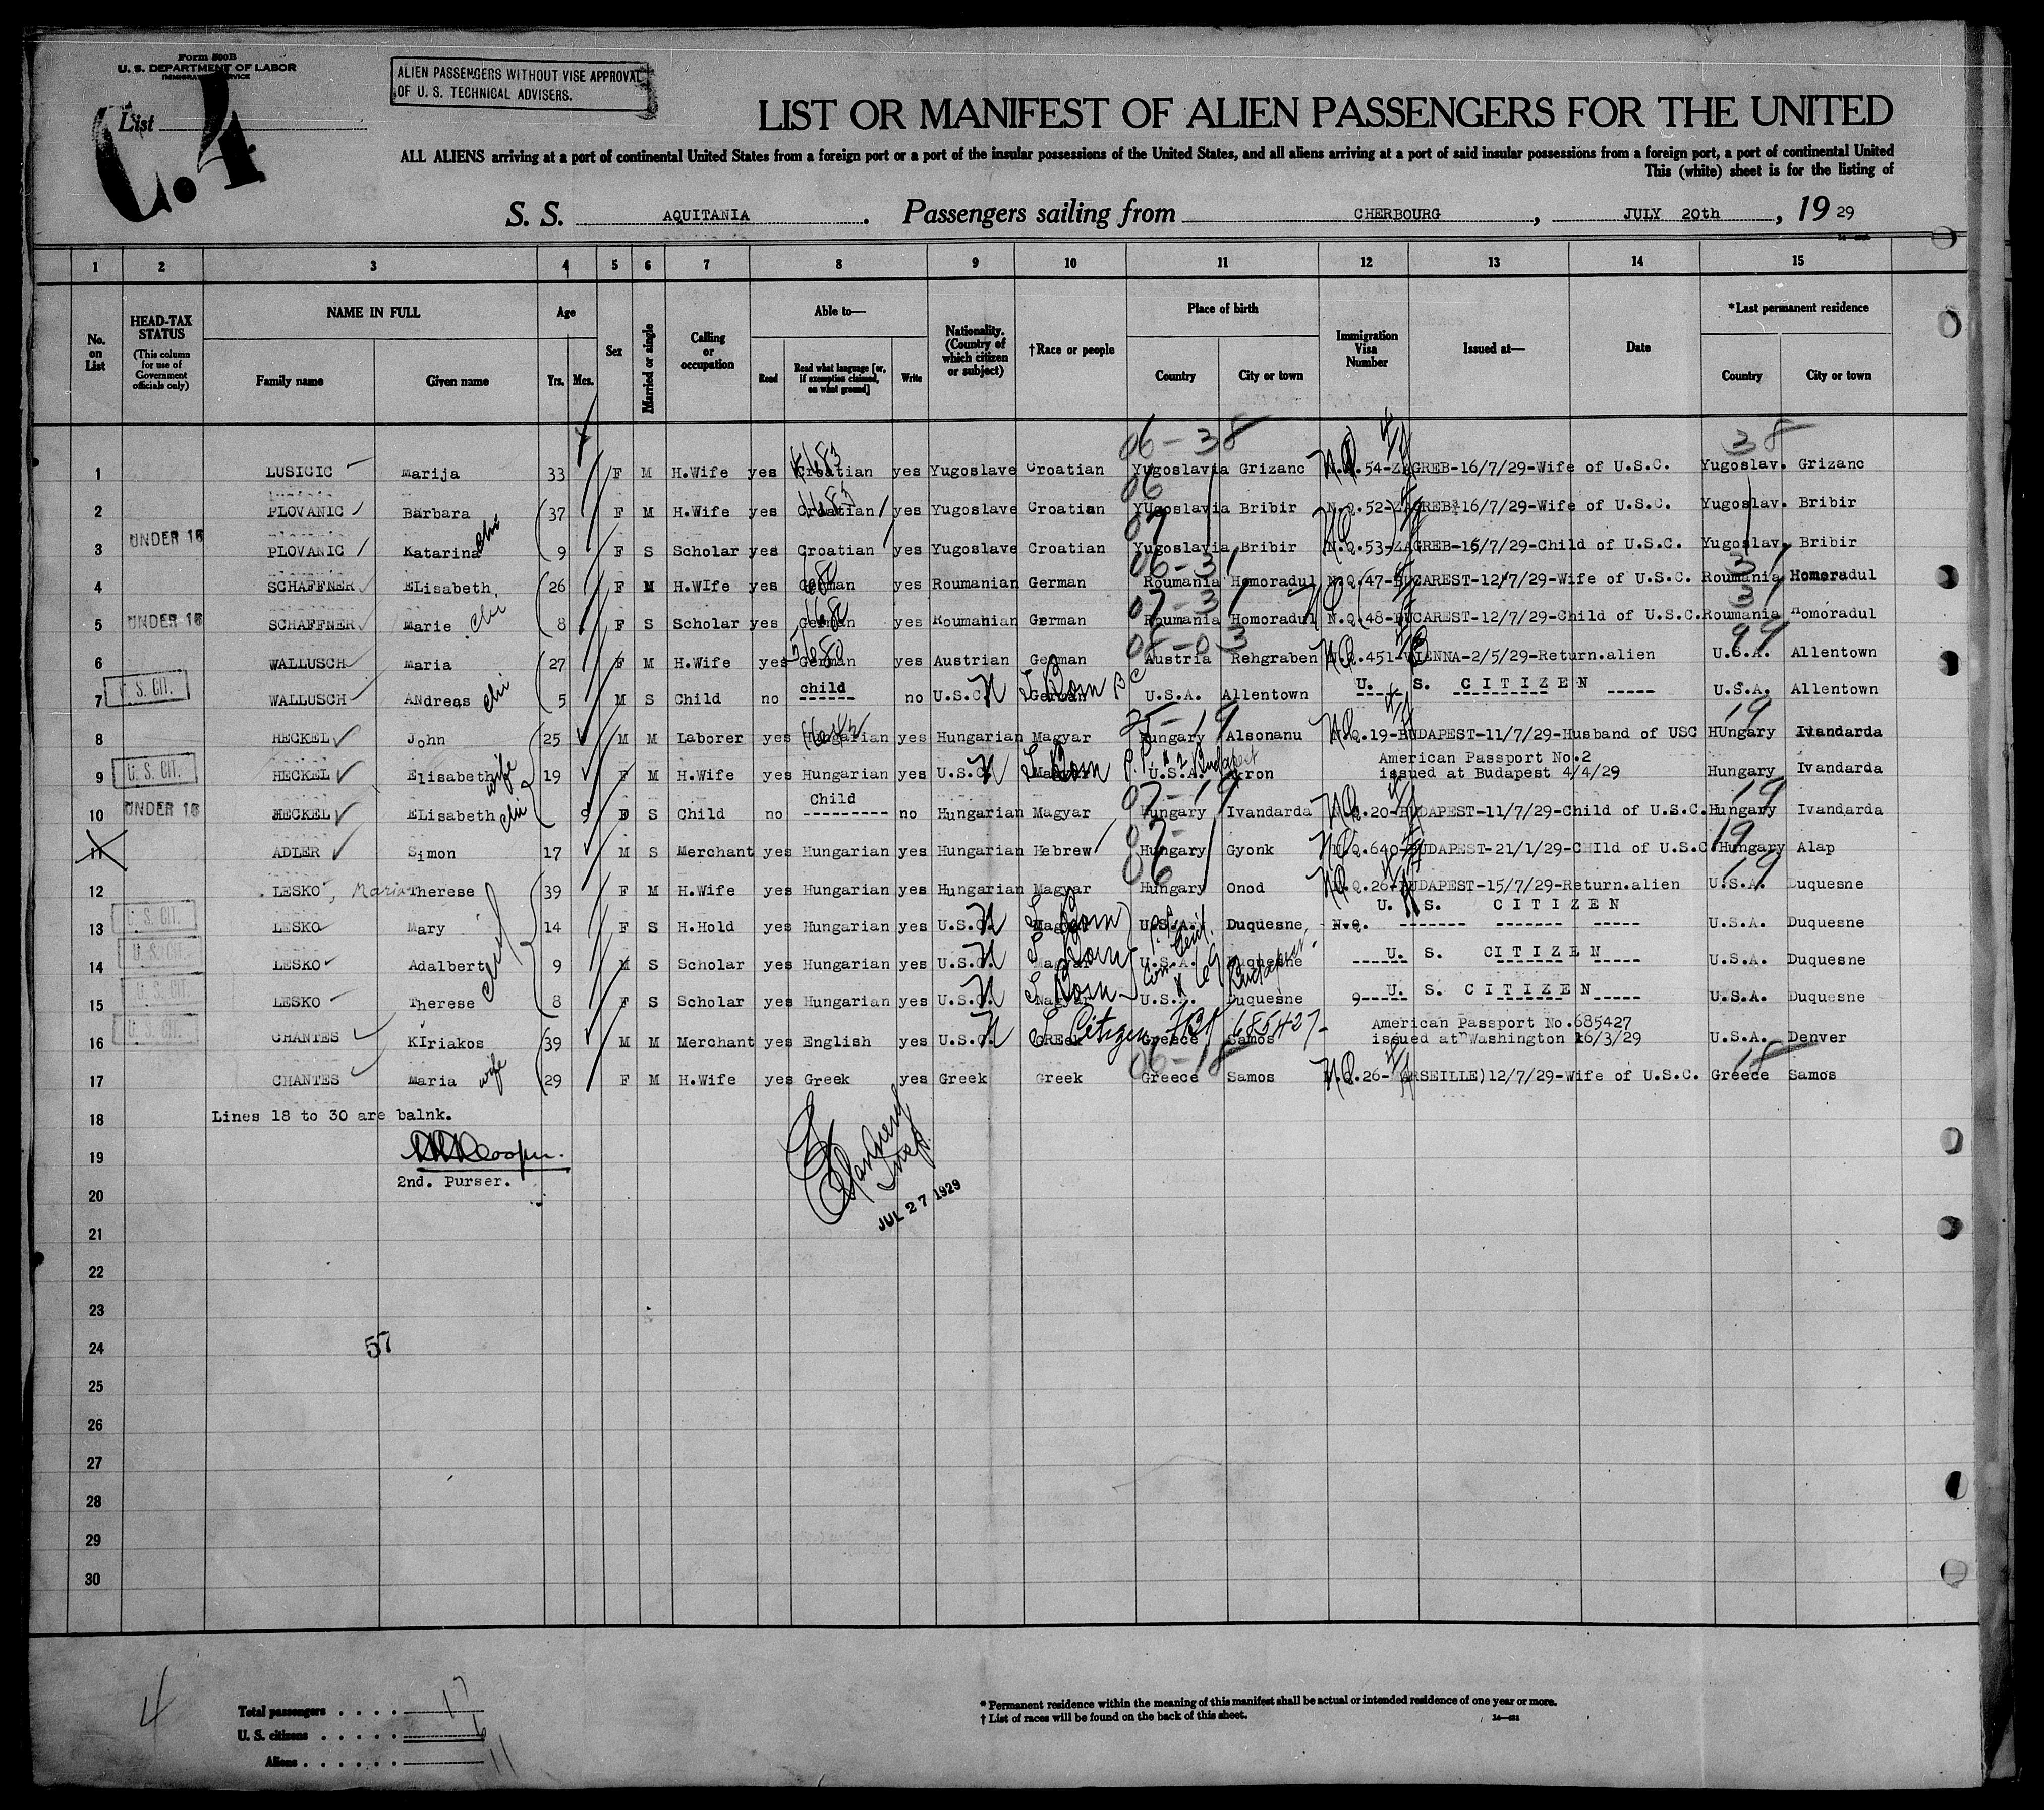 Form 500B
U. S. DEPARTMENT OF LABOR
IMMIGRATION SERVICE
List
C.4
ALIEN PASSENGERS WITHOUT VISE APPROVAL
OF U. S. TECHNICAL ADVISERS.
LIST OR MANIFEST OF ALIEN PASSENGERS FOR THE UNITED
ALL ALIENS arriving at a port of continental United States from a foreign port or a port of the insular possessions of the United States, and all aliens arriving at a port of said insular possessions from a foreign port, a port of continental United
This (white) sheet is for the listing of
S. S. AQUITANIA. Passengers sailing from CHERBOURG, JULY 20th, 19 29
1 2 3 4 5 6 7 8 9 10 11 12 13 14 15
No. on List
HEAD-TAX STATUS (This column for use of Government officials only)
NAME IN FULL
Family name Given name
Age
Yrs. Mos.
Sex
Married or single
Calling or occupation
Able to—
Read Read what language [or, if exemption claimed, on what ground] Write
Nationality. (Country of which citizen or subject)
†Race or people
Place of birth
Country City or town
Immigration Visa Number
Issued at—
Date
*Last permanent residence
Country City or town
06-38 38
1 LUSICIC Marija 33 F M H.Wife yes Croatian yes Yugoslave Croatian Yugoslavia Grizanc N.Q.54-ZAGREB-16/7/29-Wife of U.S.C. Yugoslav. Grizanc
06
2 PLOVANIC Barbara 37 F M H.Wife yes Croatian yes Yugoslave Croatian YUgoslavia Bribir N.Q.52-ZAGREB-16/7/29-Wife of U.S.C. Yugoslav. Bribir
07
3 UNDER 16 PLOVANIC Katarina chi 9 F S Scholar yes Croatian yes Yugoslave Croatian Yugoslavia Bribir N.Q.53-ZAGREB-16/7/29-Child of U.S.C. Yugoslav. Bribir
06-31 31
4 SCHAFFNER ELisabeth, 26 F M H.WIfe yes German yes Roumanian German Roumania Homoradul N.Q.47-BUCAREST-12/7/29-Wife of U.S.C. Roumania Homoradul
07-31 31
5 UNDER 16 SCHAFFNER Marie chi 8 F S Scholar yes German yes Roumanian German Roumania Homoradul N.Q.48-BUCAREST-12/7/29-Child of U.S.C. Roumania Homoradul
08-03 99
6 WALLUSCH Maria 27 F M H.Wife yes German yes Austrian German Austria Rehgraben N.Q.451-VIENNA-2/5/29-Return.alien U.S.A. Allentown
7 U. S. CIT. WALLUSCH ANdreas chi 5 M S Child no child ------ no U.S.C. N German Born BC U.S.A. Allentown U. S. CITIZEN U.S.A. Allentown
25-19 19
8 HECKEL John 25 M M Laborer yes Hungarian yes Hungarian Magyar Hungary Alsonanu N.Q.19-BUDAPEST-11/7/29-Husband of USC HUngary Ivandarda
9 U. S. CIT. HECKEL Elisabeth wife 19 F M H.Wife yes Hungarian yes U.S.C. N Magyar Born P.P. #2 Budapest U.S.A. Akron American Passport No.2
issued at Budapest 4/4/29 Hungary Ivandarda
07-19 19
10 UNDER 16 HECKEL ELisabeth chi 9 F S Child no Child --------- no Hungarian Magyar Hungary Ivandarda N.Q.20-BUDAPEST-11/7/29-Child of U.S.C. Hungary Ivandarda
07- 19
11 ADLER Simon 17 M S Merchant yes Hungarian yes Hungarian Hebrew Hungary Gyonk N.Q.640-BUDAPEST-21/1/29-CHIld of U.S.C Hungary Alap
06 19
12 LESKO, Maria Therese 39 F M H.Wife yes Hungarian yes Hungarian Magyar Hungary Onod N.Q.26-BUDAPEST-15/7/29-Return.alien U.S.A. Duquesne
13 U. S. CIT. LESKO Mary 14 F S H.Hold yes Hungarian yes U.S.C. N Magyar Born U.S.A. Duquesne, U. S. CITIZEN N.Q. ------- ------- ----- U.S.A. Duquesne
14 U. S. CIT. LESKO Adalbert 9 M S Scholar yes Hungarian yes U.S.C. N Magyar Born U.S.A. Duquesne U. S. CITIZEN U.S.A. Duquesne
15 U. S. CIT. LESKO Therese 8 F S Scholar yes Hungarian yes U.S.C. N Magyar Born U.S.A. Duquesne 9----- U. S. CITIZEN U.S.A. Duquesne
16 U. S. CIT. CHANTES KIriakos 39 M M Merchant yes English yes U.S.C. N GREEK Citizen 685427 Greece Samos American Passport No.685427
issued at Washington 16/3/29 U.S.A. Denver
06-18 18
17 CHANTES Maria wife 29 F M H.Wife yes Greek yes Greek Greek Greece Samos N.Q.26-MARSEILLE)12/7/29-Wife of U.S.C. Greece Samos
18 Lines 18 to 30 are balnk.
19 Cooper.
2nd. Purser.
Insp.
JUL 27 1929
20
21
22
23
24 57
25
26
27
28
29
30
4
Total passengers . . . . 17
U. S. citizens . . . . . 6
Aliens . . . . . . 11
* Permanent residence within the meaning of this manifest shall be actual or intended residence of one year or more.
† List of races will be found on the back of this sheet.